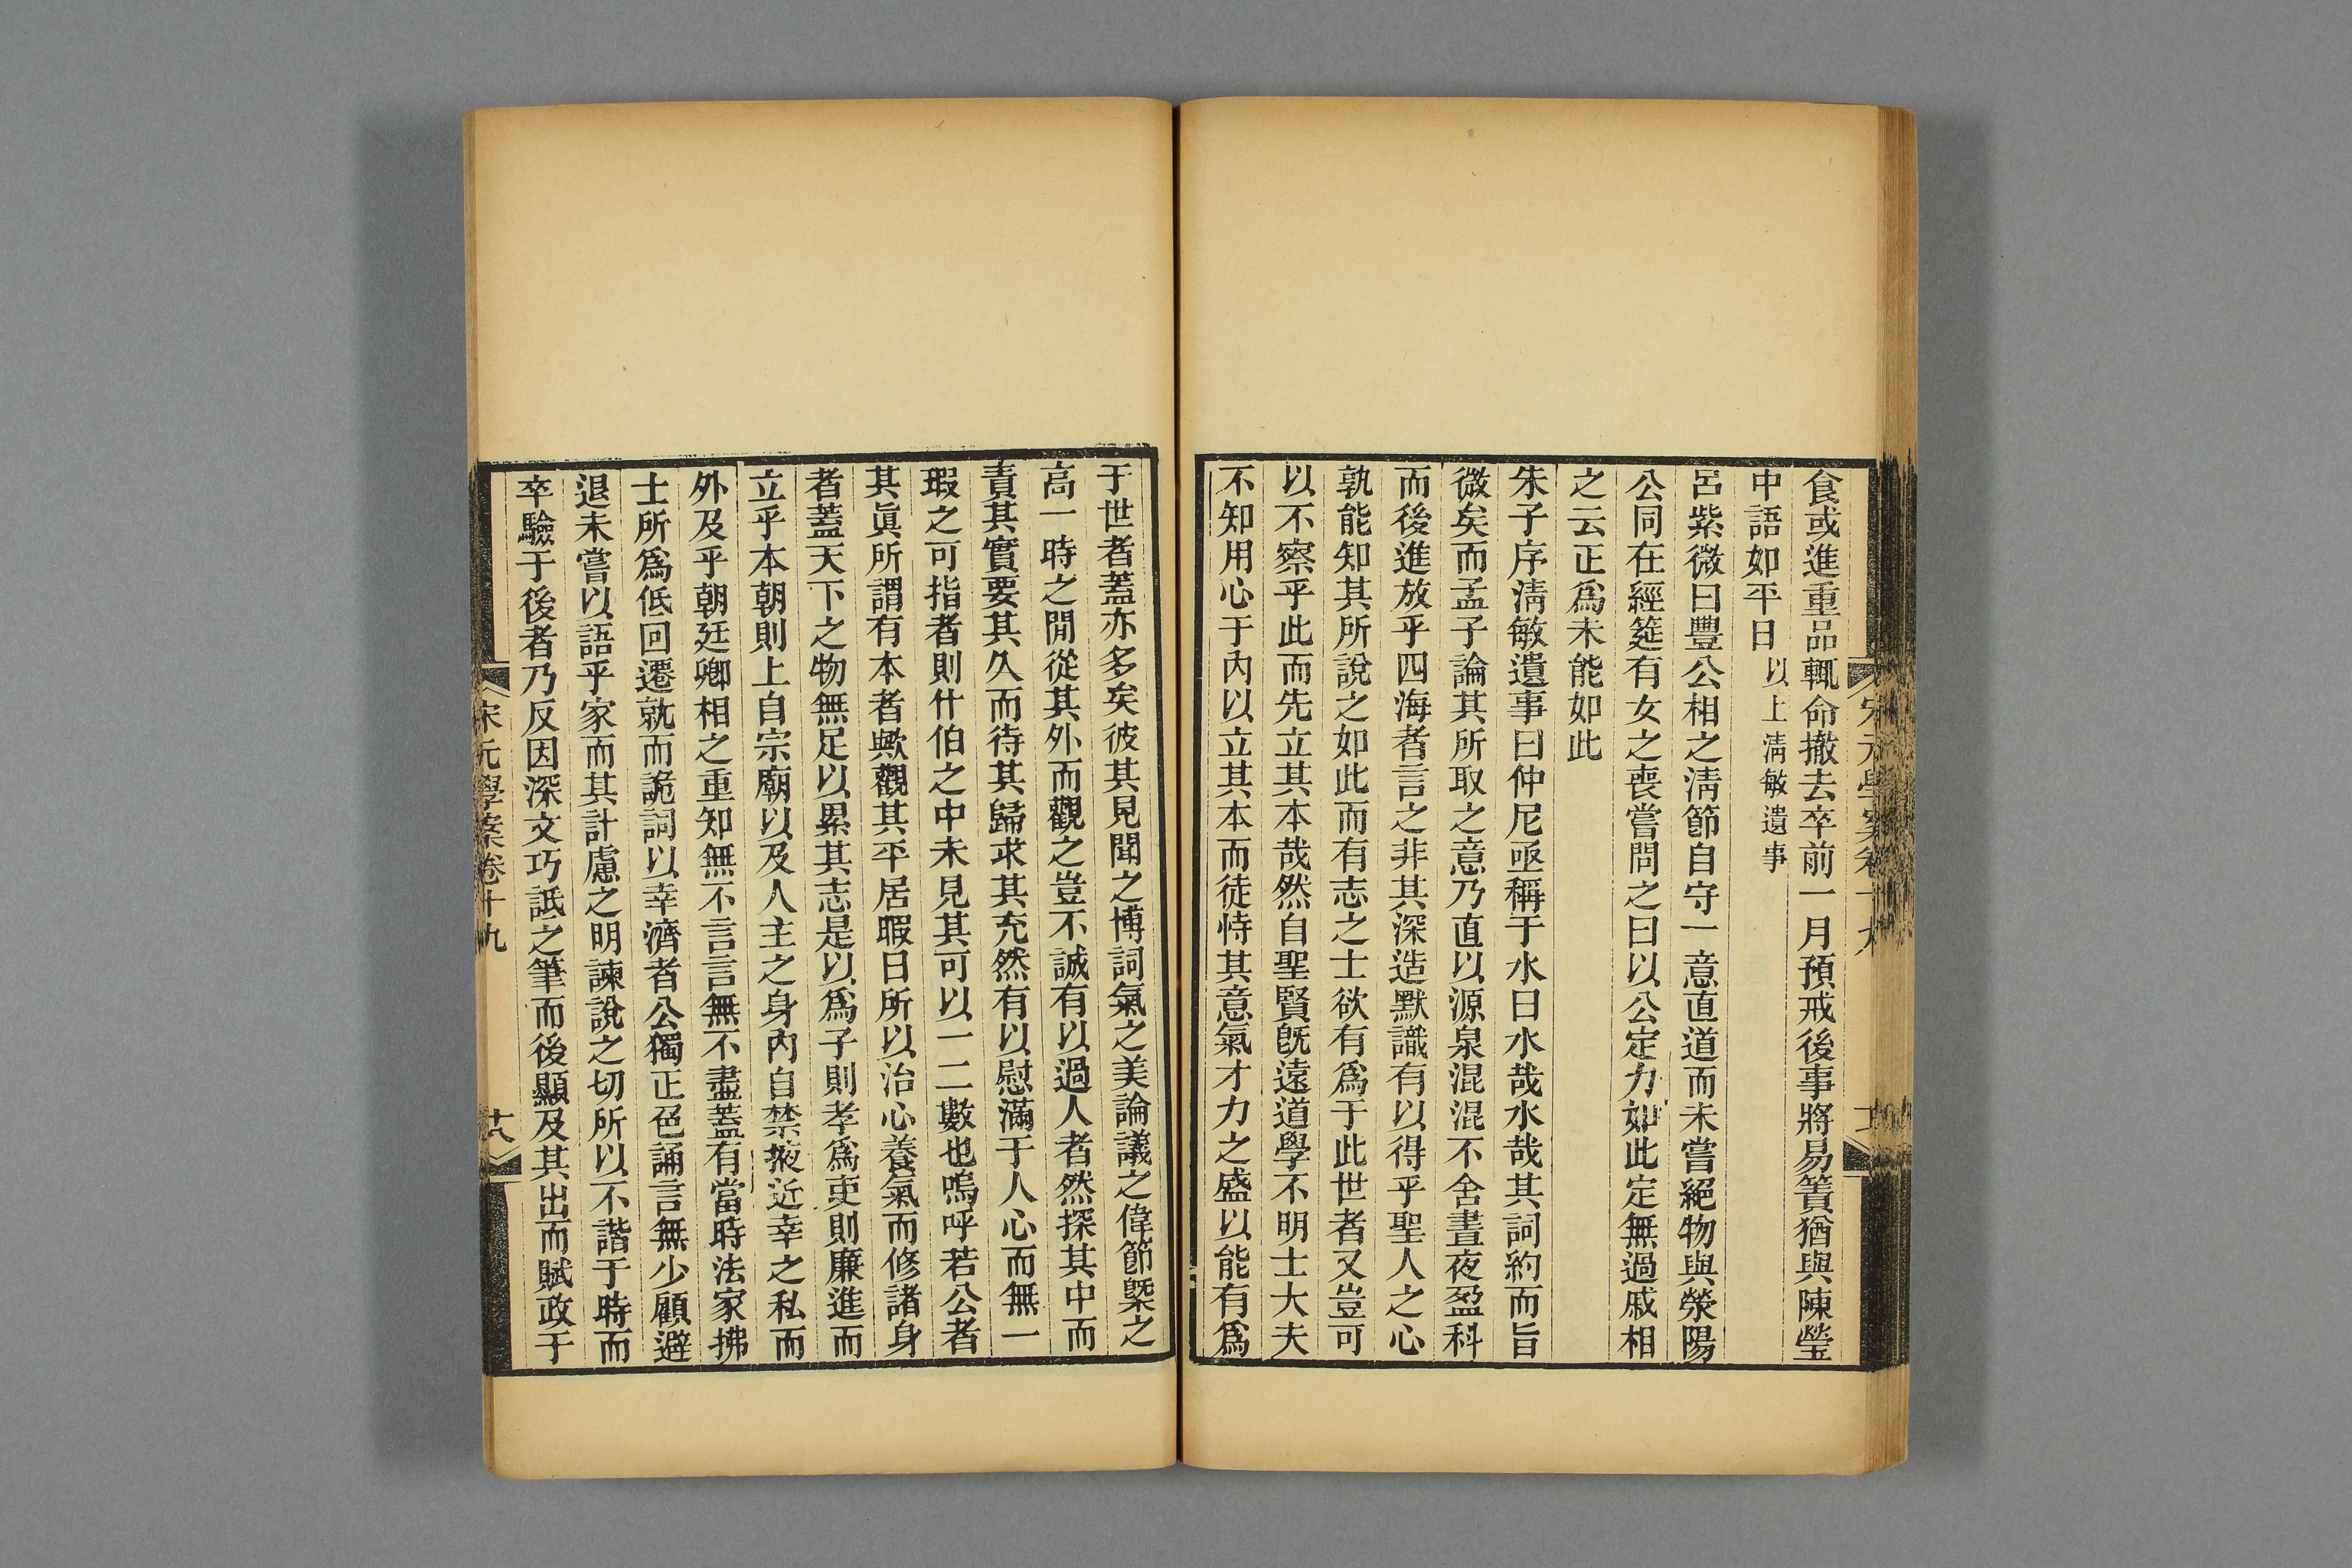 食或進重品輒命撤去卒前一月預戒後事將易簀猶與陳瑩
中語如平日以上清敏遺事
呂紫微曰豐公相之清節自守一意直道而未嘗絕物與滎陽
公同在經筵有女之喪嘗問之曰以公定力如此定無過戚相
之云正爲未能如此
朱子序清敏遺事曰仲尼亟稱于水曰水哉水哉其詞約而旨
微矣而孟子論其所取之意乃直以源泉混混不舍晝夜盈科
而後進放乎四海者言之非其深造默識有以得乎聖人之心
孰能知其所說之如此而有志之士欲有爲于此世者又豈可
以不察乎此而先立其本哉然自聖賢旣遠道學不明士大夫
不知用心于內以立其本而徒恃其意氣才力之盛以能有爲
于世者蓋亦多矣彼其見聞之博詞氣之美論議之偉節槩之
高一時之閒從其外而觀之豈不誠有以過人者然探其中而
責其實要其久而待其歸求其充然有以慰滿于人心而無一
瑕之可指者則什伯之中未見其可以一二數也嗚呼若公者
其眞所謂有本者歟觀其平居暇日所以治心養氣而修諸身
者蓋天下之物無足以累其志是以爲子則孝爲吏則廉進而
立乎本朝則上自宗廟以及人主之身內自禁掖近幸之私而
外及乎朝廷卿相之重知無不言言無不盡蓋有當時法家拂
士所爲低回遷就而詭詞以幸濟者公獨正色誦言無少顧避
退未嘗以語乎家而其計慮之明諫說之切所以不諧于時而
卒驗于後者乃反因深文巧詆之筆而後顯及其出而賦政于
宋元學案卷十九
十八